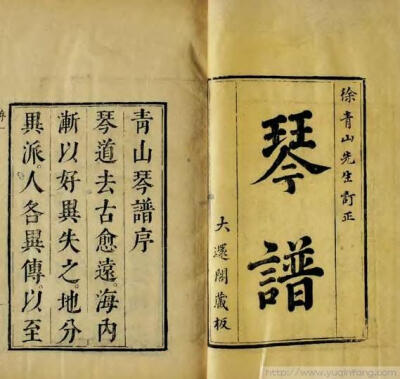 徐青山先生訂正
琴譜
大還閣藏板
青山琴譜序
琴道去古愈遠。海内
漸以好異失之。地分
異派。人各異傳。以至
http://www.yuqinfang.com